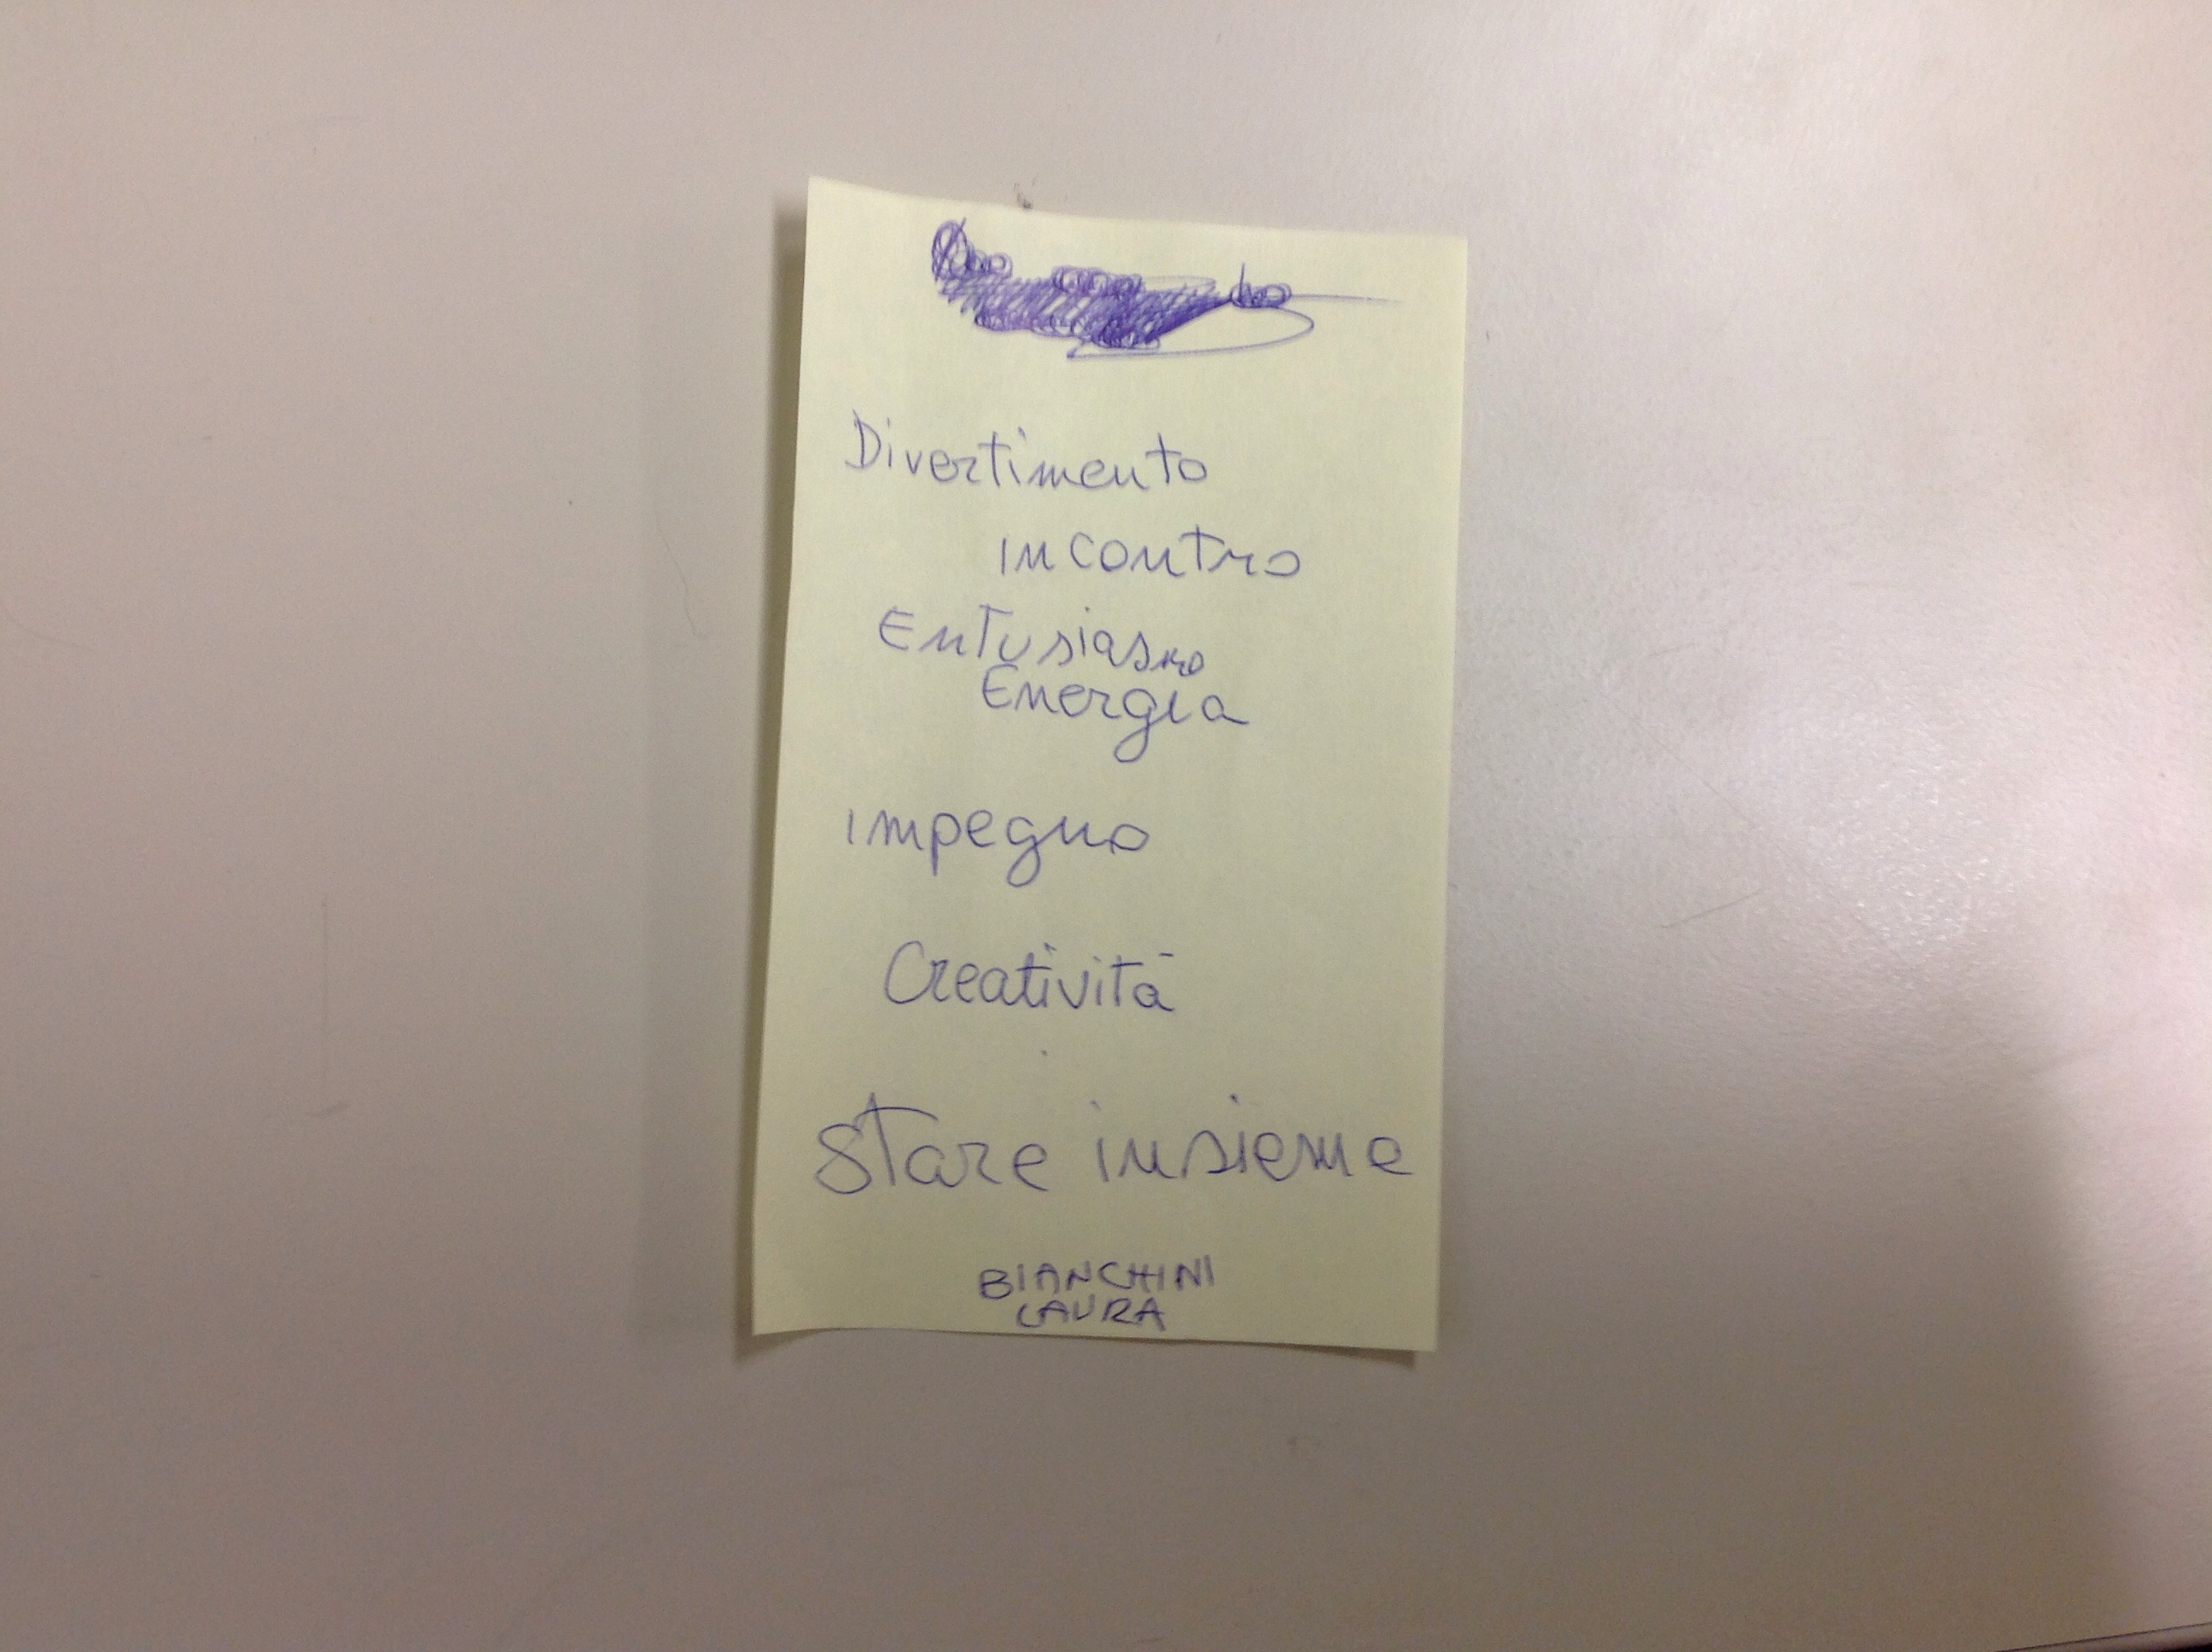 Divertimento
incontro
Entusiasmo
Energia
impegno
Creatività
Stare insieme
BIANCHINI
LAURA